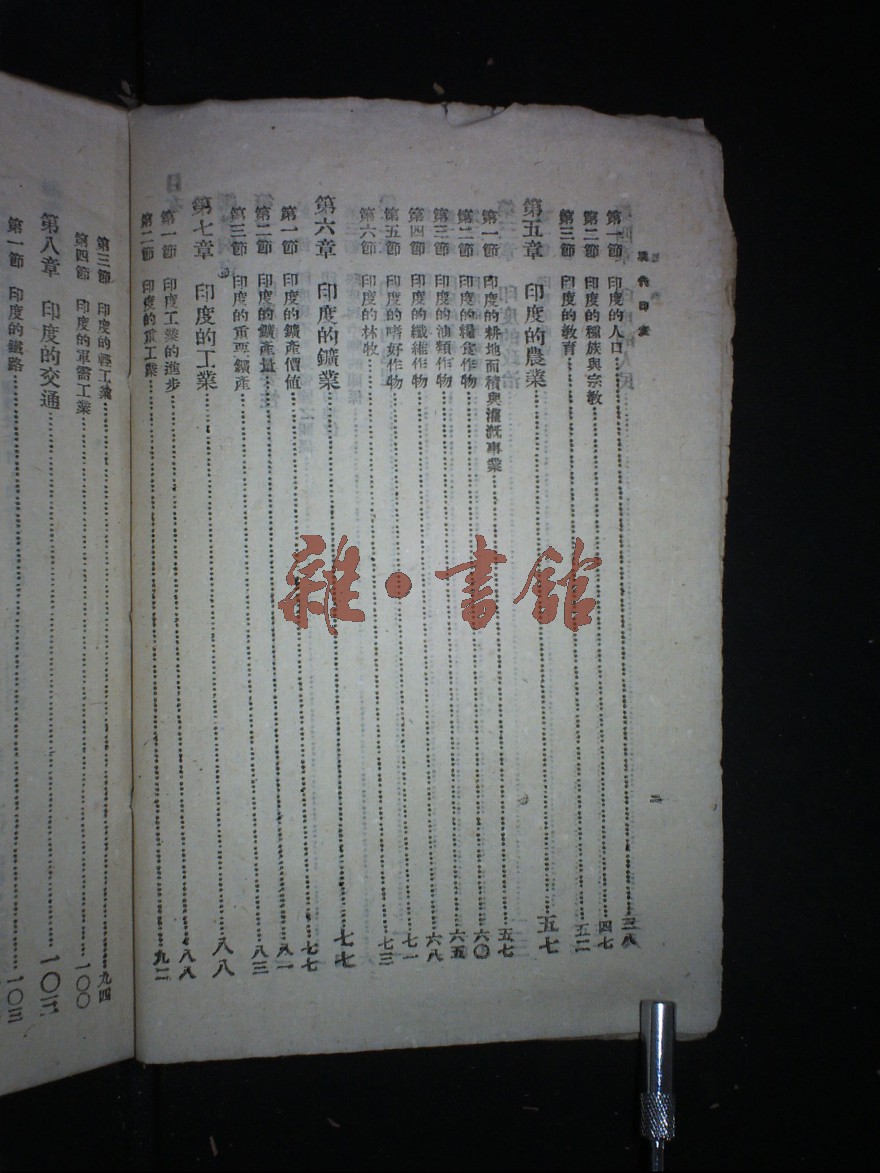 現代印度
第一節　印度的人口…………三八
第二節　印度的種族與宗教…………四七
第三節　印度的教育…………五二
第五章　印度的農業…………五七
第一節　印度的耕地面積與灌漑事業…………五七
第二節　印度的糧食作物…………六〇
第三節　印度的油類作物…………六五
第四節　印度的纖維作物…………六八
第五節　印度的嗜好作物…………七一
第六節　印度的林牧…………七三
第六章　印度的鑛業…………七七
第一節　印度的鑛產價値…………七七
第二節　印度的鑛產量…………八一
第三節　印度的重要鑛產…………八三
第七章　印度的工業…………八八
第一節　印度工業的進步…………八八
第二節　印度的重工業…………九二
二
第三節　印度的輕工業…………九四
第四節　印度的軍需工業…………一〇〇
第八章　印度的交通…………一〇三
第一節　印度的鐵路…………一〇三
雜·書館